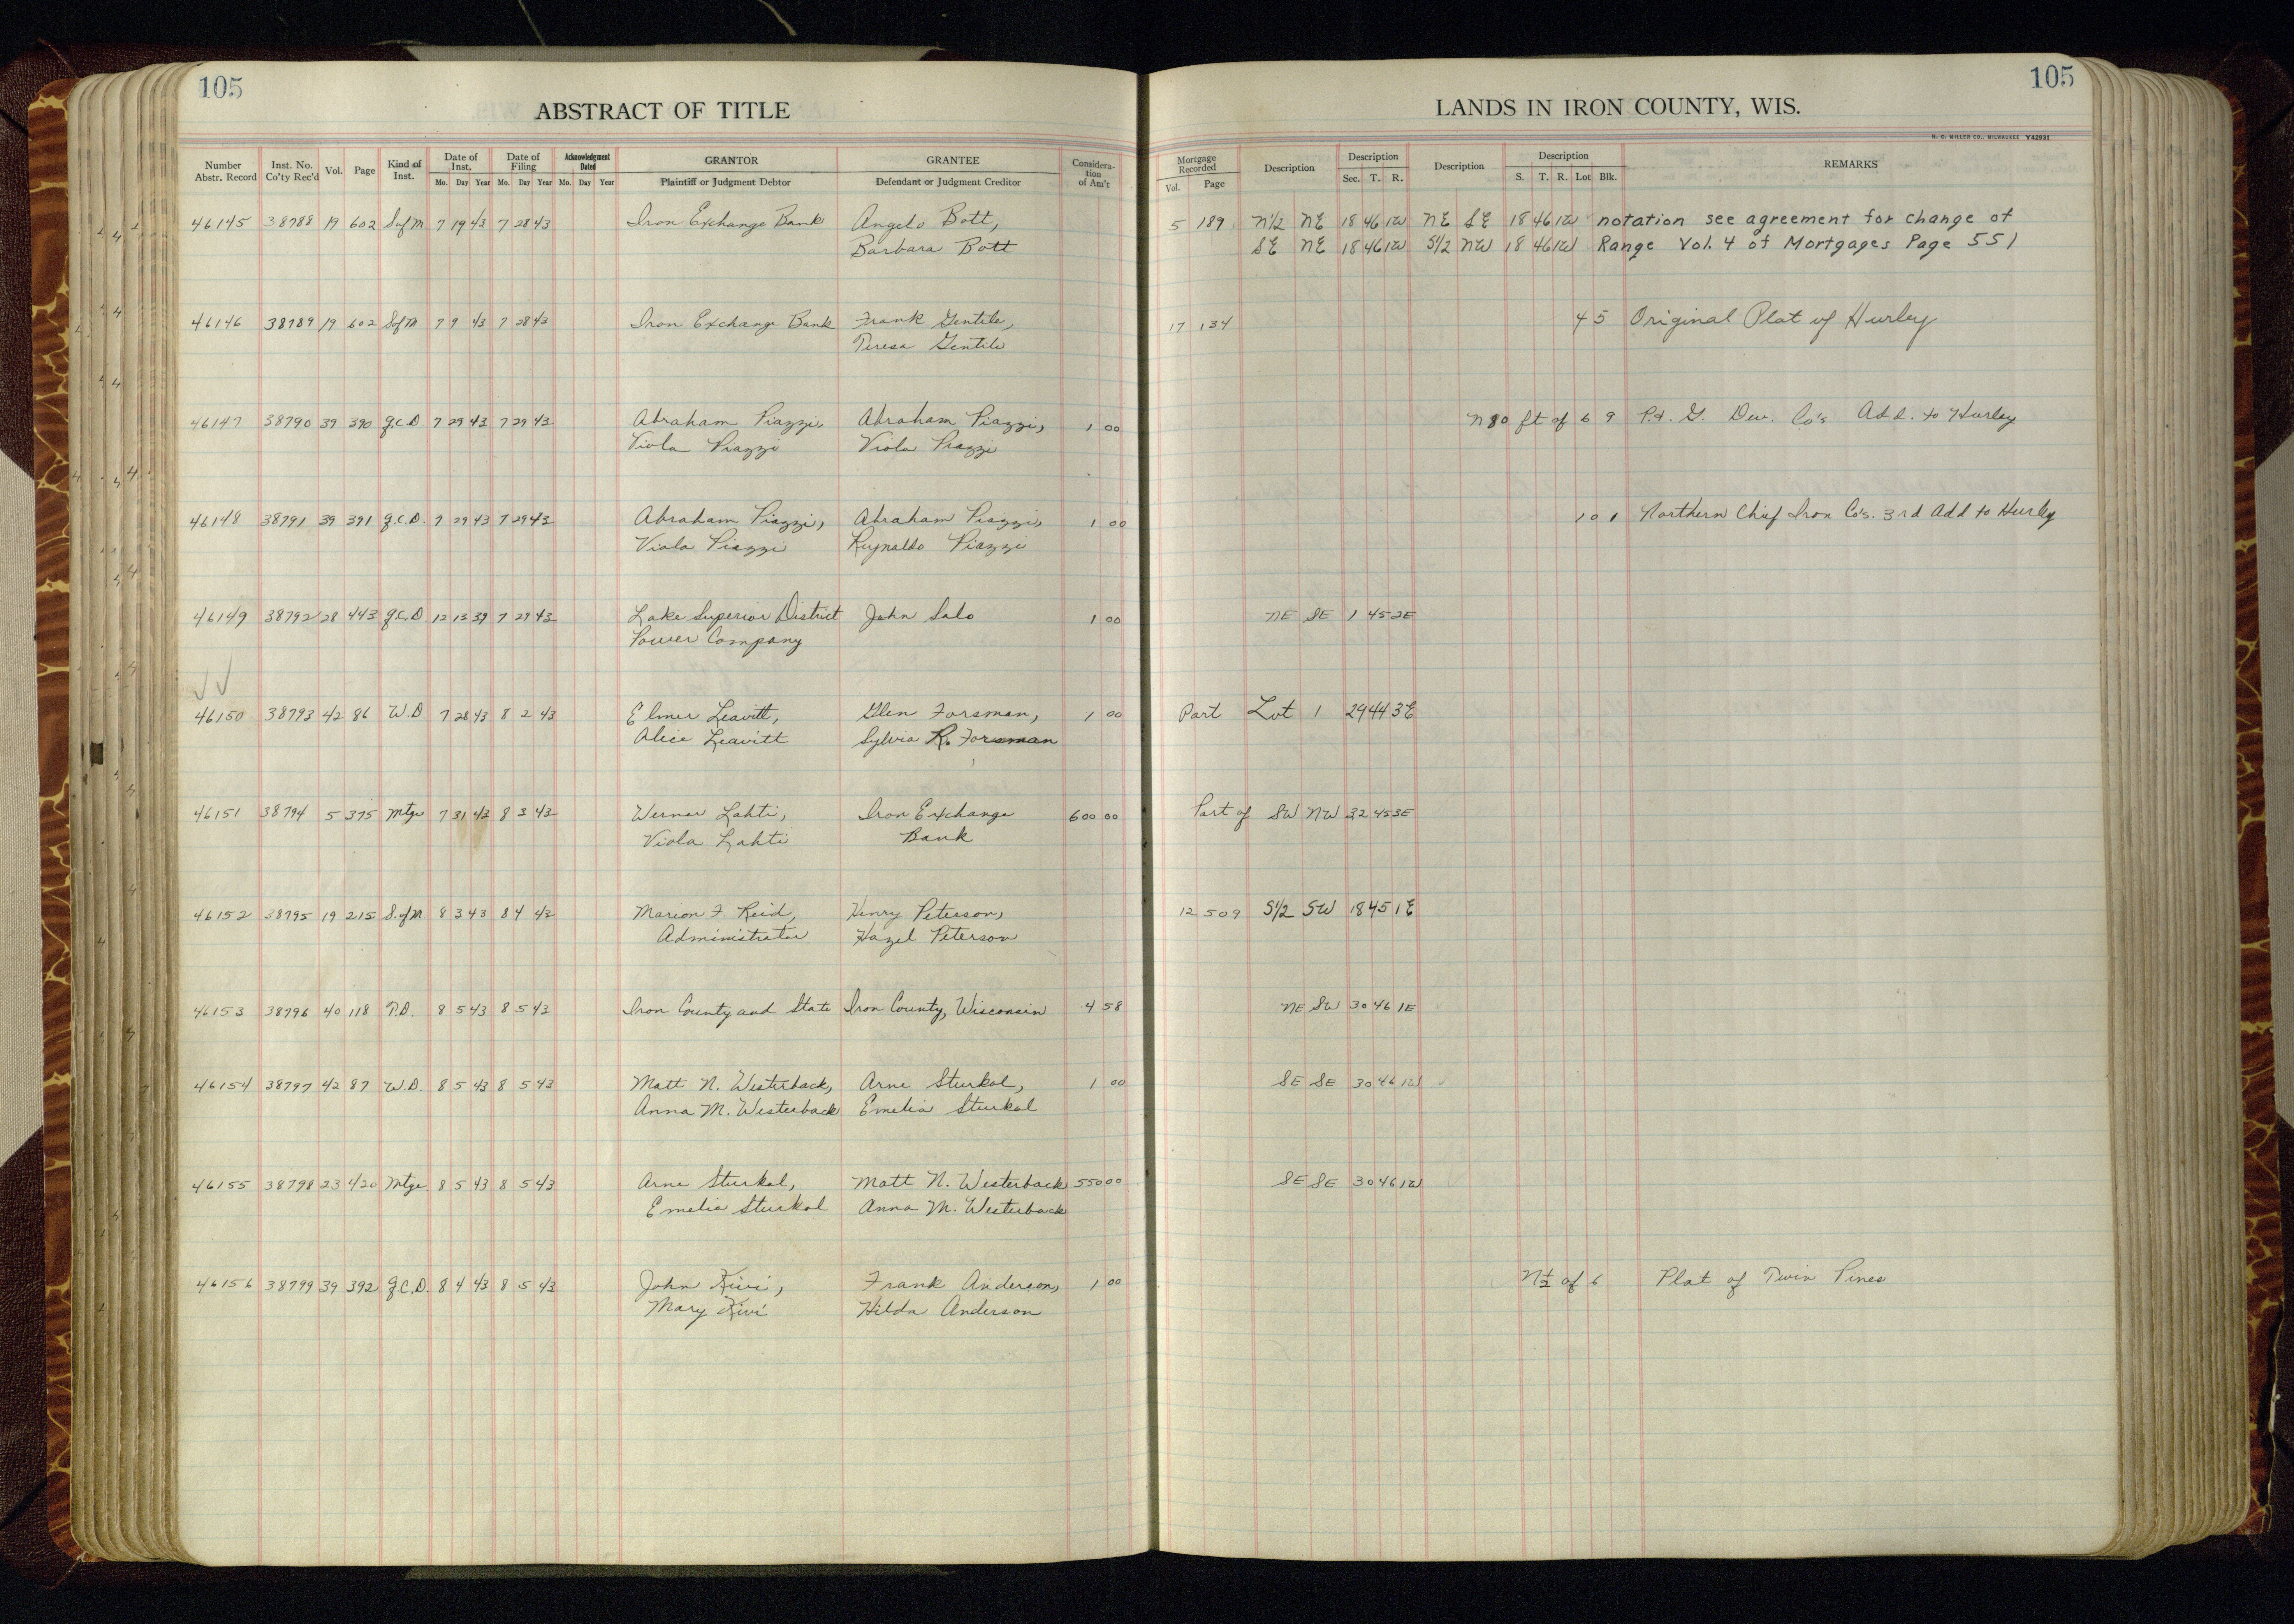 105
ABSTRACT OF TITLE
Number Abstr. Record Inst. No. Co'ty Rec'd Vol. Page Kind of Inst. Date of Inst. Mo. Day Year Date of Filing Mo. Day Year Acknowledgment Dated Mo. Day Year GRANTOR Plaintiff or Judgment Debtor GRANTEE Defendant or Judgment Creditor Considera-tion of Am't
46145 38788 19 602 S of M 7 19 43 7 28 43 Iron Exchange Bank Angelo Bott,
Barbara Bott
46146 38789 19 602 S of M 7 9 43 7 28 43 Iron Exchange Bank Frank Gentile,
Teresa Gentile
46147 38790 39 390 Q.C.D. 7 29 43 7 29 43 Abraham Piazzi, Abraham Piazzi, 1 00
Viola Piazzi Viola Piazzi
46148 38791 39 391 Q.C.D. 7 29 43 7 29 43 Abraham Piazzi, Abraham Piazzi, 1 00
Viola Piazzi Reynaldo Piazzi
46149 38792 28 443 Q.C.D. 12 13 39 7 29 43 Lake Superior District John Salo 1 00
Power Company
46150 38793 42 86 W.D 7 28 43 8 2 43 Elmer Leavitt, Glen Forsman, 1 00
Alice Leavitt Sylvia R. Forsman
46151 38794 5 375 Mtge 7 31 43 8 3 43 Werner Lahti, Iron Exchange 600 00
Viola Lahti Bank
46152 38795 19 215 S. of M. 8 3 43 8 4 43 Marion F. Reid, Henry Peterson,
Administrator Hazel Peterson
46153 38796 40 118 T.D. 8 5 43 8 5 43 Iron County and State Iron County, Wisconsin 4 58
46154 38797 42 87 W.D. 8 5 43 8 5 43 Matt N. Westerback, Arne Sturkol, 1 00
Anna M. Westerback Emelia Sturkol
46155 38798 23 420 Mtge 8 5 43 8 5 43 Arne Sturkol, Matt N. Westerback 550 00
Emelia Sturkol Anna M. Westerback
46156 38799 39 392 Q.C.D. 8 4 43 8 5 43 John Kivi, Frank Anderson, 1 00
Mary Kivi Hilda Anderson
105
LANDS IN IRON COUNTY, WIS.
H. C. MILLER CO., MILWAUKEE Y42931
Mortgage Recorded Vol. Page Description Description Sec. T. R. Description Description S. T. R. Lot Blk. REMARKS
5 189 N1/2 NE 18 46 1W NE SE 18 46 1W notation see agreement for change of
SE NE 18 46 1W S1/2 NW 18 46 1W Range Vol. 4 of Mortgages Page 551
17 134 4 5 Original Plat of Hurley
N 80 ft of 6 9 P. & G. Dev. Co's Add. to Hurley
10 1 Northern Chief Iron Co's. 3rd Add to Hurley
NE SE 1 45 2E
Part Lot 1 29 44 3E
Part of SW NW 32 45 3E
12 509 S1/2 SW 18 45 1E
NE SW 30 46 1E
SE SE 30 46 1W
SE SE 30 46 1W
N 1/2 of 6 Plat of Twin Pines